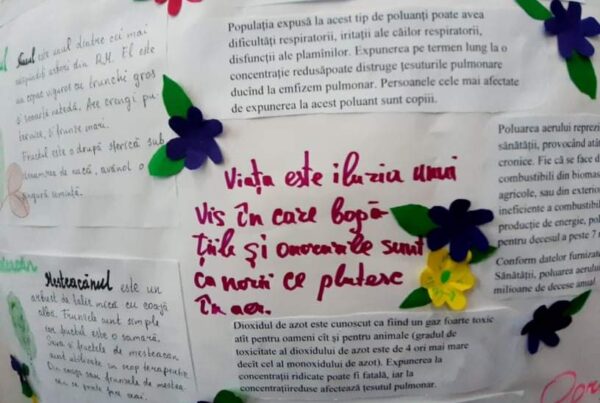 Nucul este unul dintre cei mai
răspîndiți arbori din R.M. El este
un copac viguros cu trunchi gros
și scoarța netedă. Are crengi pu-
ternice, și frunze mari.
Fructul este o drupă sferică sub
denumirea de nucă, avînd o
singură semință.
Mesteacănul este un
arbust de talie mică cu coajă
alba. Frunzele sunt simple
iar fructul este o samară.
Seva și frunzele de mesteacăn
sunt utilizate în scop terapeutic
Din coaja sau frunzele de mestea
Populația expusă la acest tip de poluanți poate avea
dificultăți respiratorii, iritații ale căilor respiratorii,
disfuncții ale plamînilor. Expunerea pe termen lung la o
concentrație redusăpoate distruge țesuturile pulmonare
ducînd la emfizem pulmonar. Persoanele cele mai afectate
de expunerea la acest poluant sunt copiii.
Viața este iluzia unui
Vis în care bogă-
țiile și onorurile sunt
ca norii ce plutesc
în aer.
Dioxidul de azot este cunoscut ca fiind un gaz foarte toxic
atît pentru oameni cît și pentru animale (gradul de
toxicitate al dioxidului de azot este de 4 ori mai mare
decît cel al monoxidului de azot). Expunerea la
concentrații ridicate poate fi fatală, iar la
concentrațiireduse afectează țesutul pulmonar.
Poluarea aerului reprezi
sănătății, provocînd atît
cronice. Fie că se face d
combustibili din biomas
agricole, sau din exterior
ineficiente a combustibil
producție de energie, pol
pentru decesul a peste 7 m
Conform datelor furnizate
Sănătății, poluarea aerului
milioane de decese anual